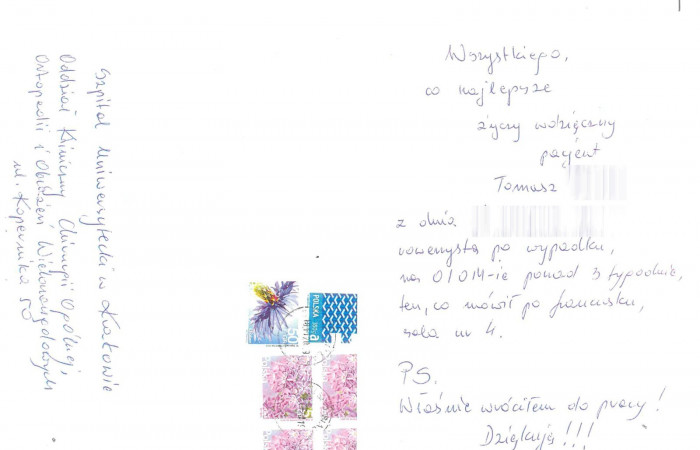 Szpital Uniwersytecki w Krakowie
Oddział Kliniczny Chirurgii Ogólnej,
Ortopedii i Obrażeń Wielonarządowych
ul. Kopernika 50
POLSKA
Wszystkiego,
co najlepsze
życzy wdzięczny
pacjent
Tomasz
z dnia
rowerzysta po wypadku,
na OIOM-ie ponad 3 tygodnie,
ten, co mówił po francusku,
sala nr 4.
PS.
Właśnie wróciłem do pracy!
Dziękuję!!!